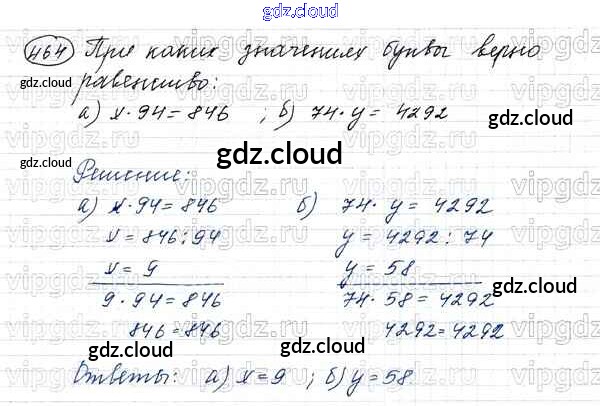 gdz.cloud
464 При каких значениях буквы верно
равенство:
а) x · 94 = 846 ; б) 74 · y = 4292
gdz.cloud
Решение:
а) x · 94 = 846 б) 74 · y = 4292
x = 846 : 94 y = 4292 : 74
x = 9 y = 58
9 · 94 = 846 74 · 58 = 4292
846 = 846 4292 = 4292
Ответы: а) x = 9 ; б) y = 58.
gdz.cloud
gdz.cloud
gdz.cloud
gdz.cloud
gdz.cloud
gdz.cloud
vipgdz.ru